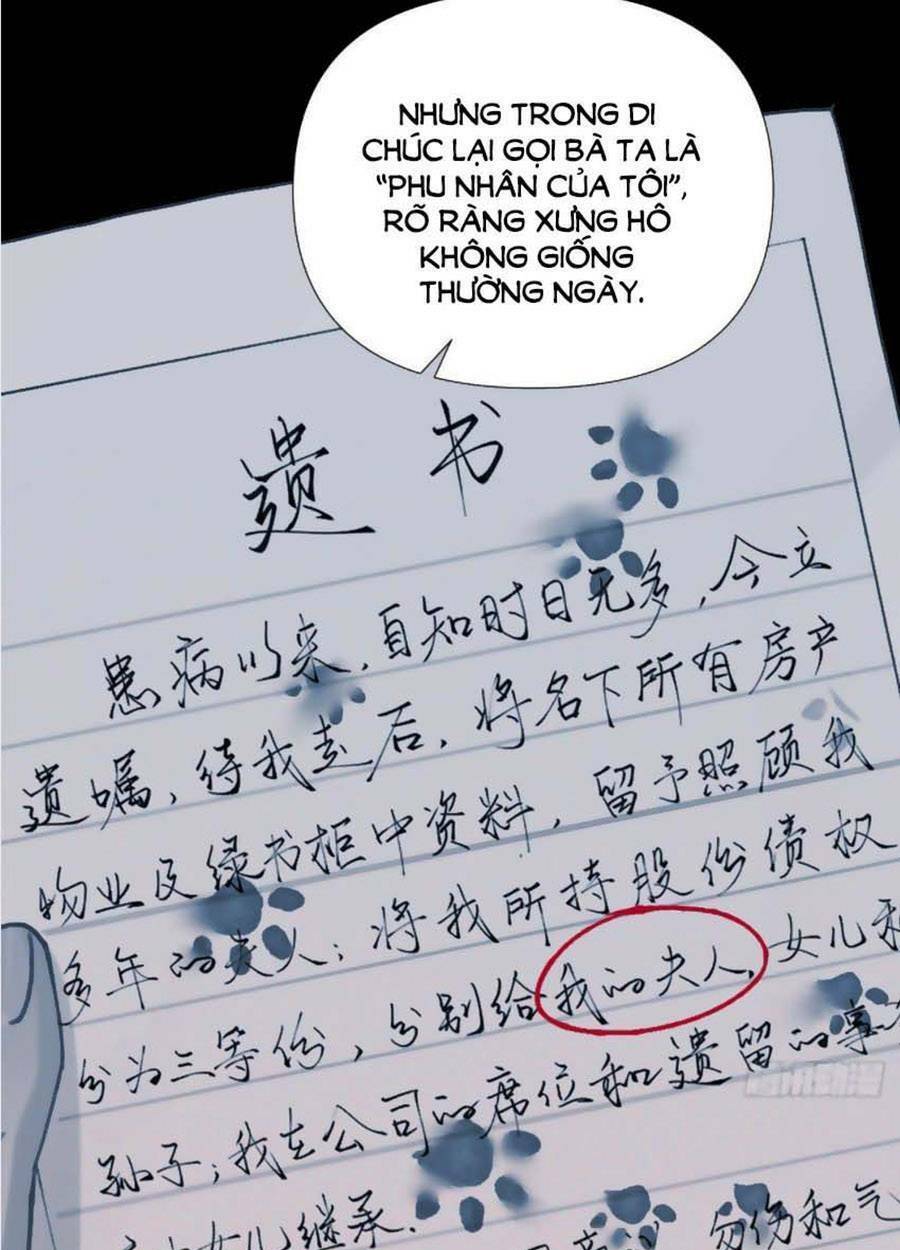 NHƯNG TRONG DI
CHÚC LẠI GỌI BÀ TA LÀ
“PHU NHÂN CỦA TÔI”,
RÕ RÀNG XƯNG HÔ
KHÔNG GIỐNG
THƯỜNG NGÀY.
遗书
患病以来，自知时日无多，今立
遗嘱，待我走后，将名下所有房产
物业及绿书柜中资料，留予照顾我
多年的夫人；将我所持股份债权
分为三等份，分别给我的夫人、女儿和
孙子；我在公司的席位和遗留的事
女儿继承.
勿伤和气